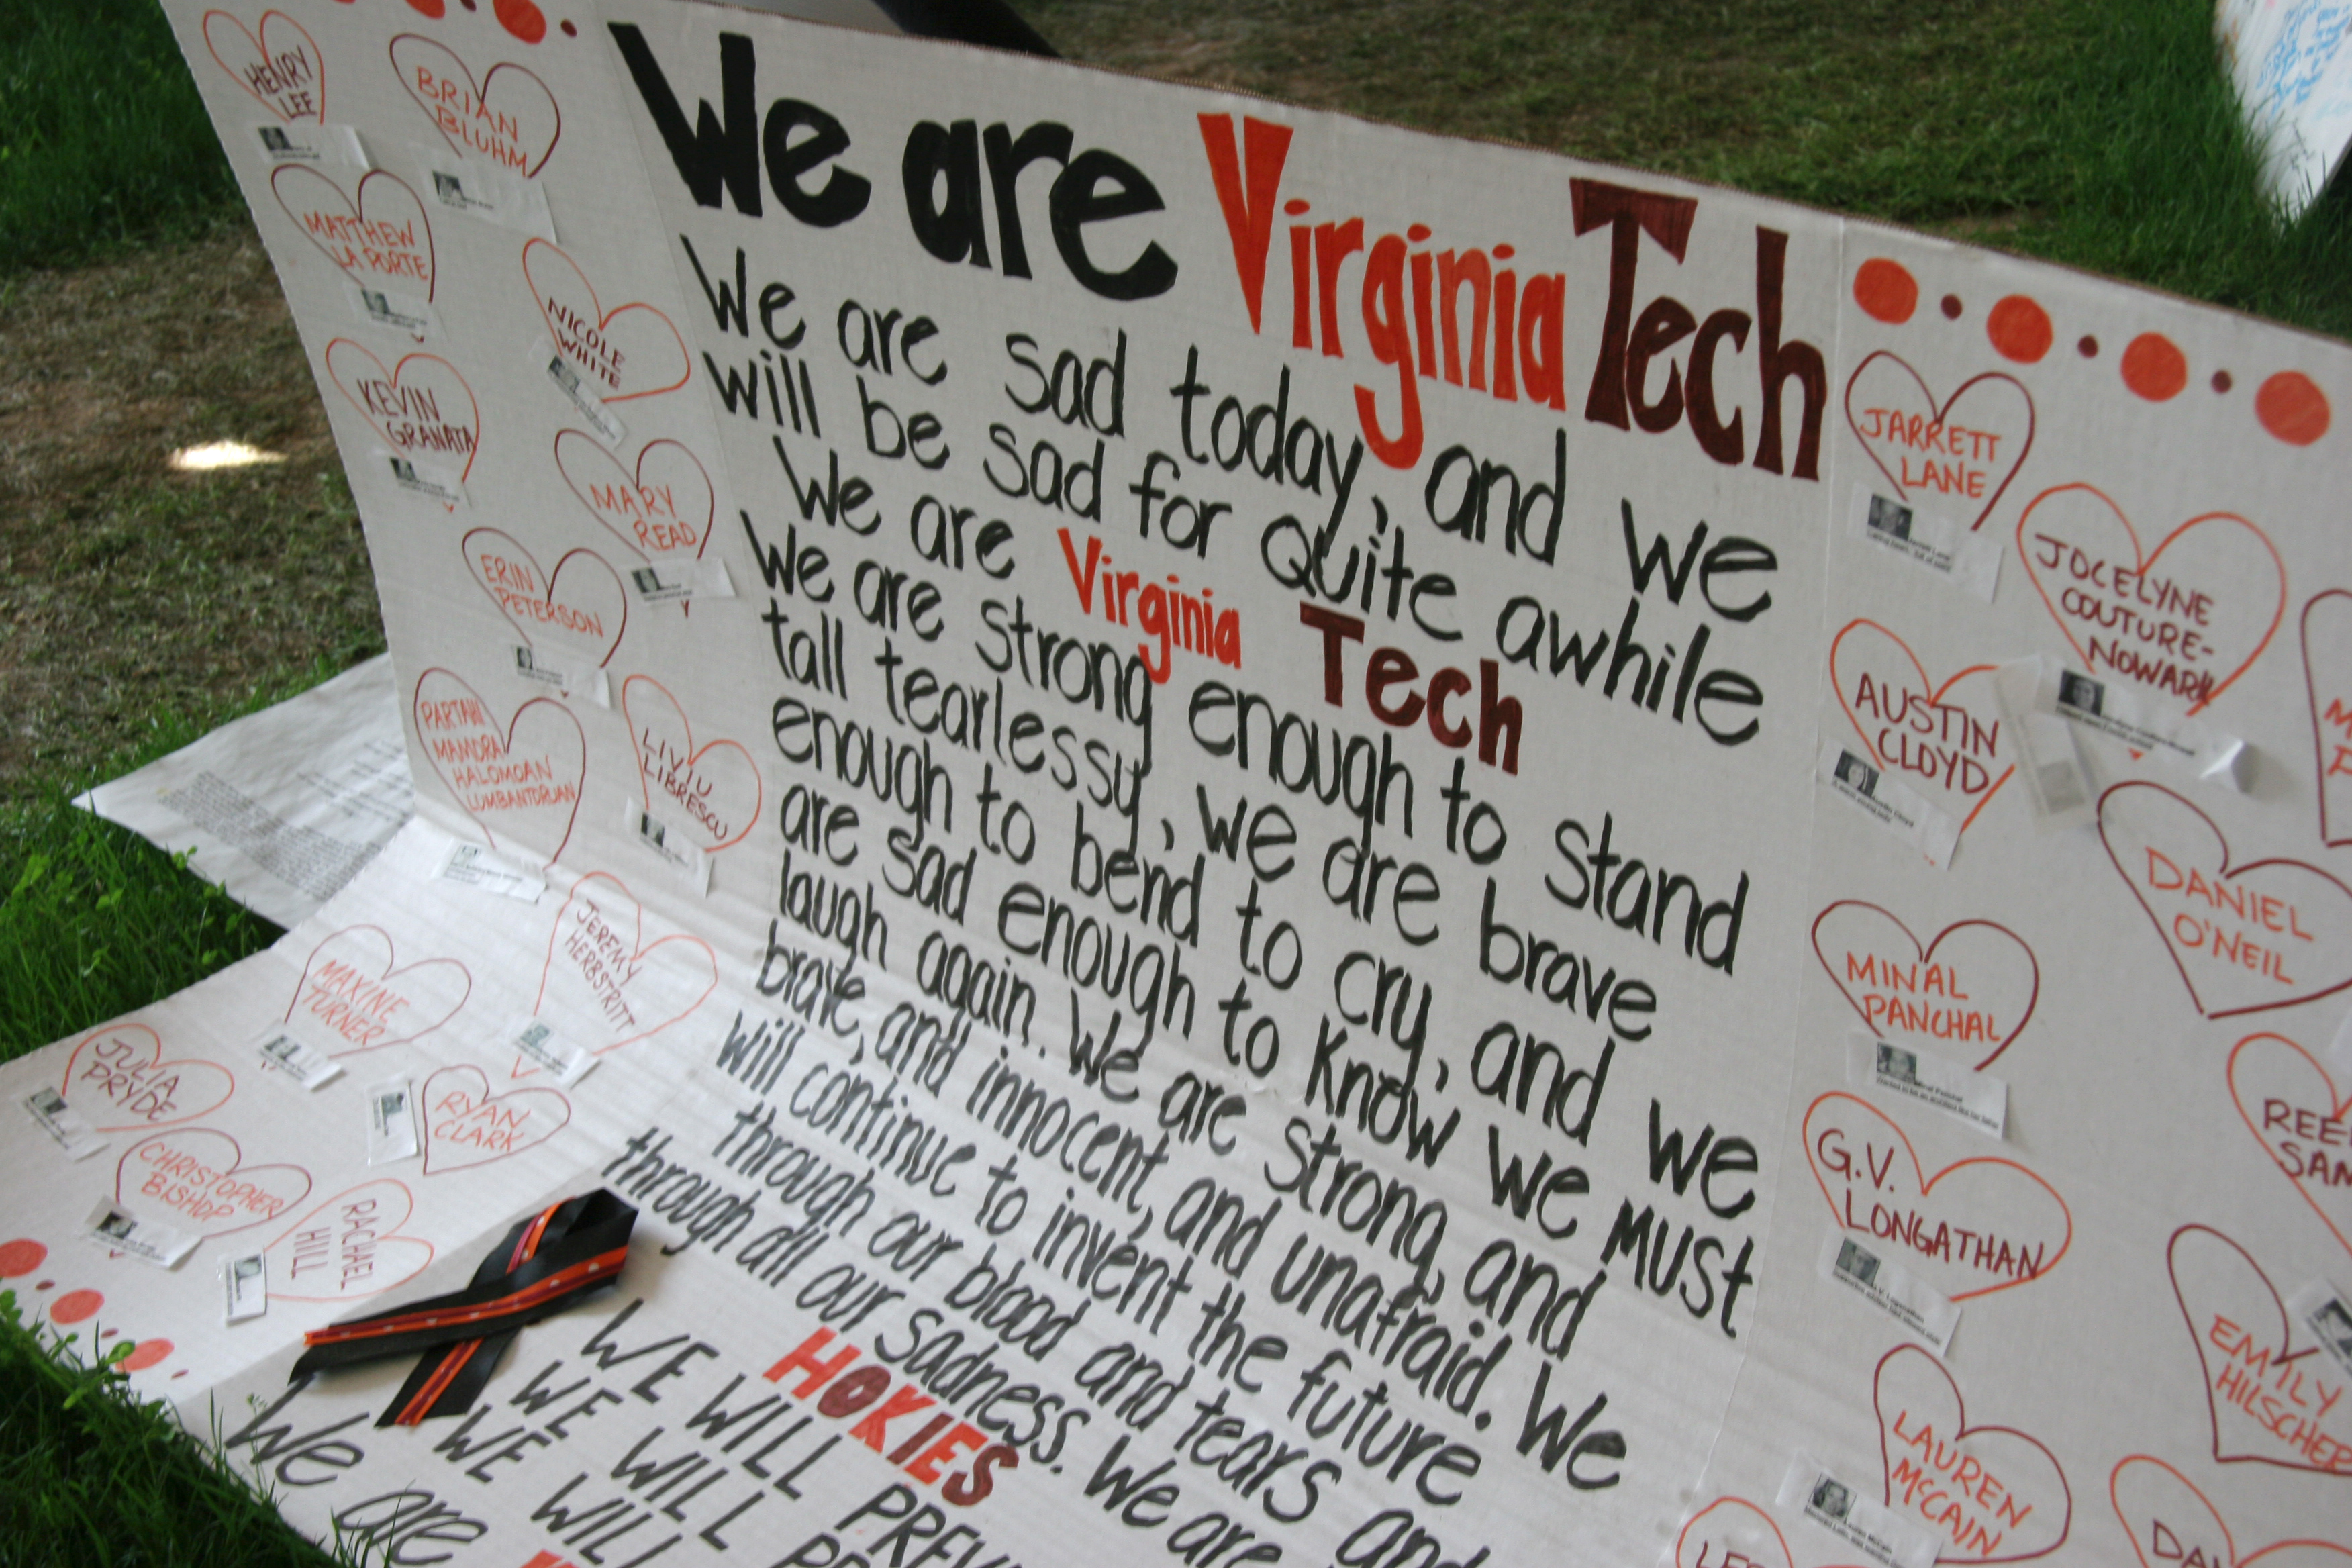 HENRY
LEE
BRIAN
BLUHM
MATTHEW
LA PORTE
NICOLE
WHITE
KEVIN
GRANATA
MARY
READ
ERIN
PETERSON
PARTAHI
MAMORA
HALOMOAN
LUMBANTORUAN
LIVIU
LIBRESCU
JEREMY
HERBSTRITT
MAXINE
TURNER
JULIA
PRYDE
RYAN
CLARK
CHRISTOPHER
BISHOP
RACHAEL
HILL
We are Virginia Tech
We are sad today, and we
will be sad for quite awhile
We are Virginia Tech
We are strong enough to stand
tall tearlessy, we are brave
enough to bend to cry, and we
are sad enough to know we MUST
laugh again. We are strong, and
brave, and innocent, and unafraid. We
will continue to invent the future
through our blood and tears and
through all our sadness. We are
HOKIES
WE WILL PREV
WE WILL
WE WILL
We are
JARRETT
LANE
JOCELYNE
COUTURE-
NOWARK
AUSTIN
CLOYD
DANIEL
O'NEIL
MINAL
PANCHAL
REE
SAM
G.V.
LONGATHAN
EMILY
HILSCHER
LAUREN
McCAIN
DA